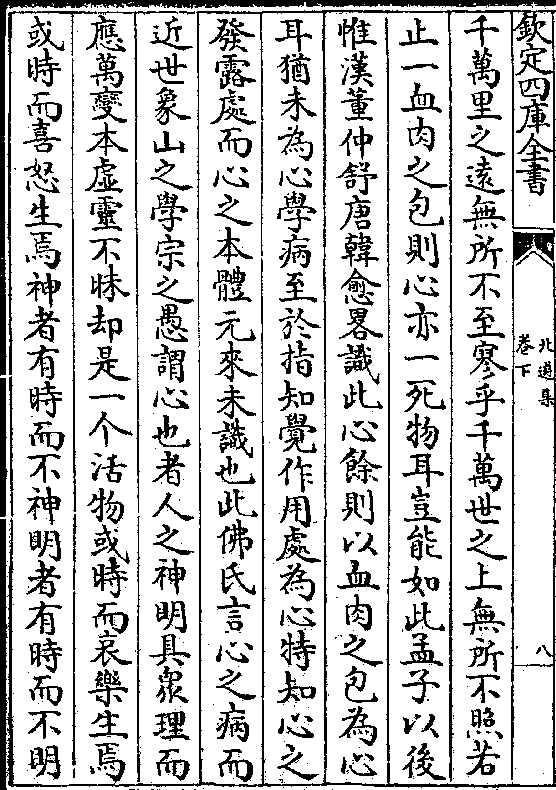 欽定四庫全書
北遊集
卷下
八
千萬里之遠無所不至寥乎千萬世之上無所不照若
止一血肉之包則心亦一死物耳豈能如此孟子以後
惟漢董仲舒唐韓愈畧識此心餘則以血肉之包為心
耳猶未為心學病至於指知覺作用處為心特知心之
發露處而心之本體元來未識也此佛氏言心之病而
近世象山之學宗之愚謂心也者人之神明具衆理而
應萬變本虛靈不昧却是一个活物或時而哀樂生焉
或時而喜怒生焉神者有時而不神明者有時而不明